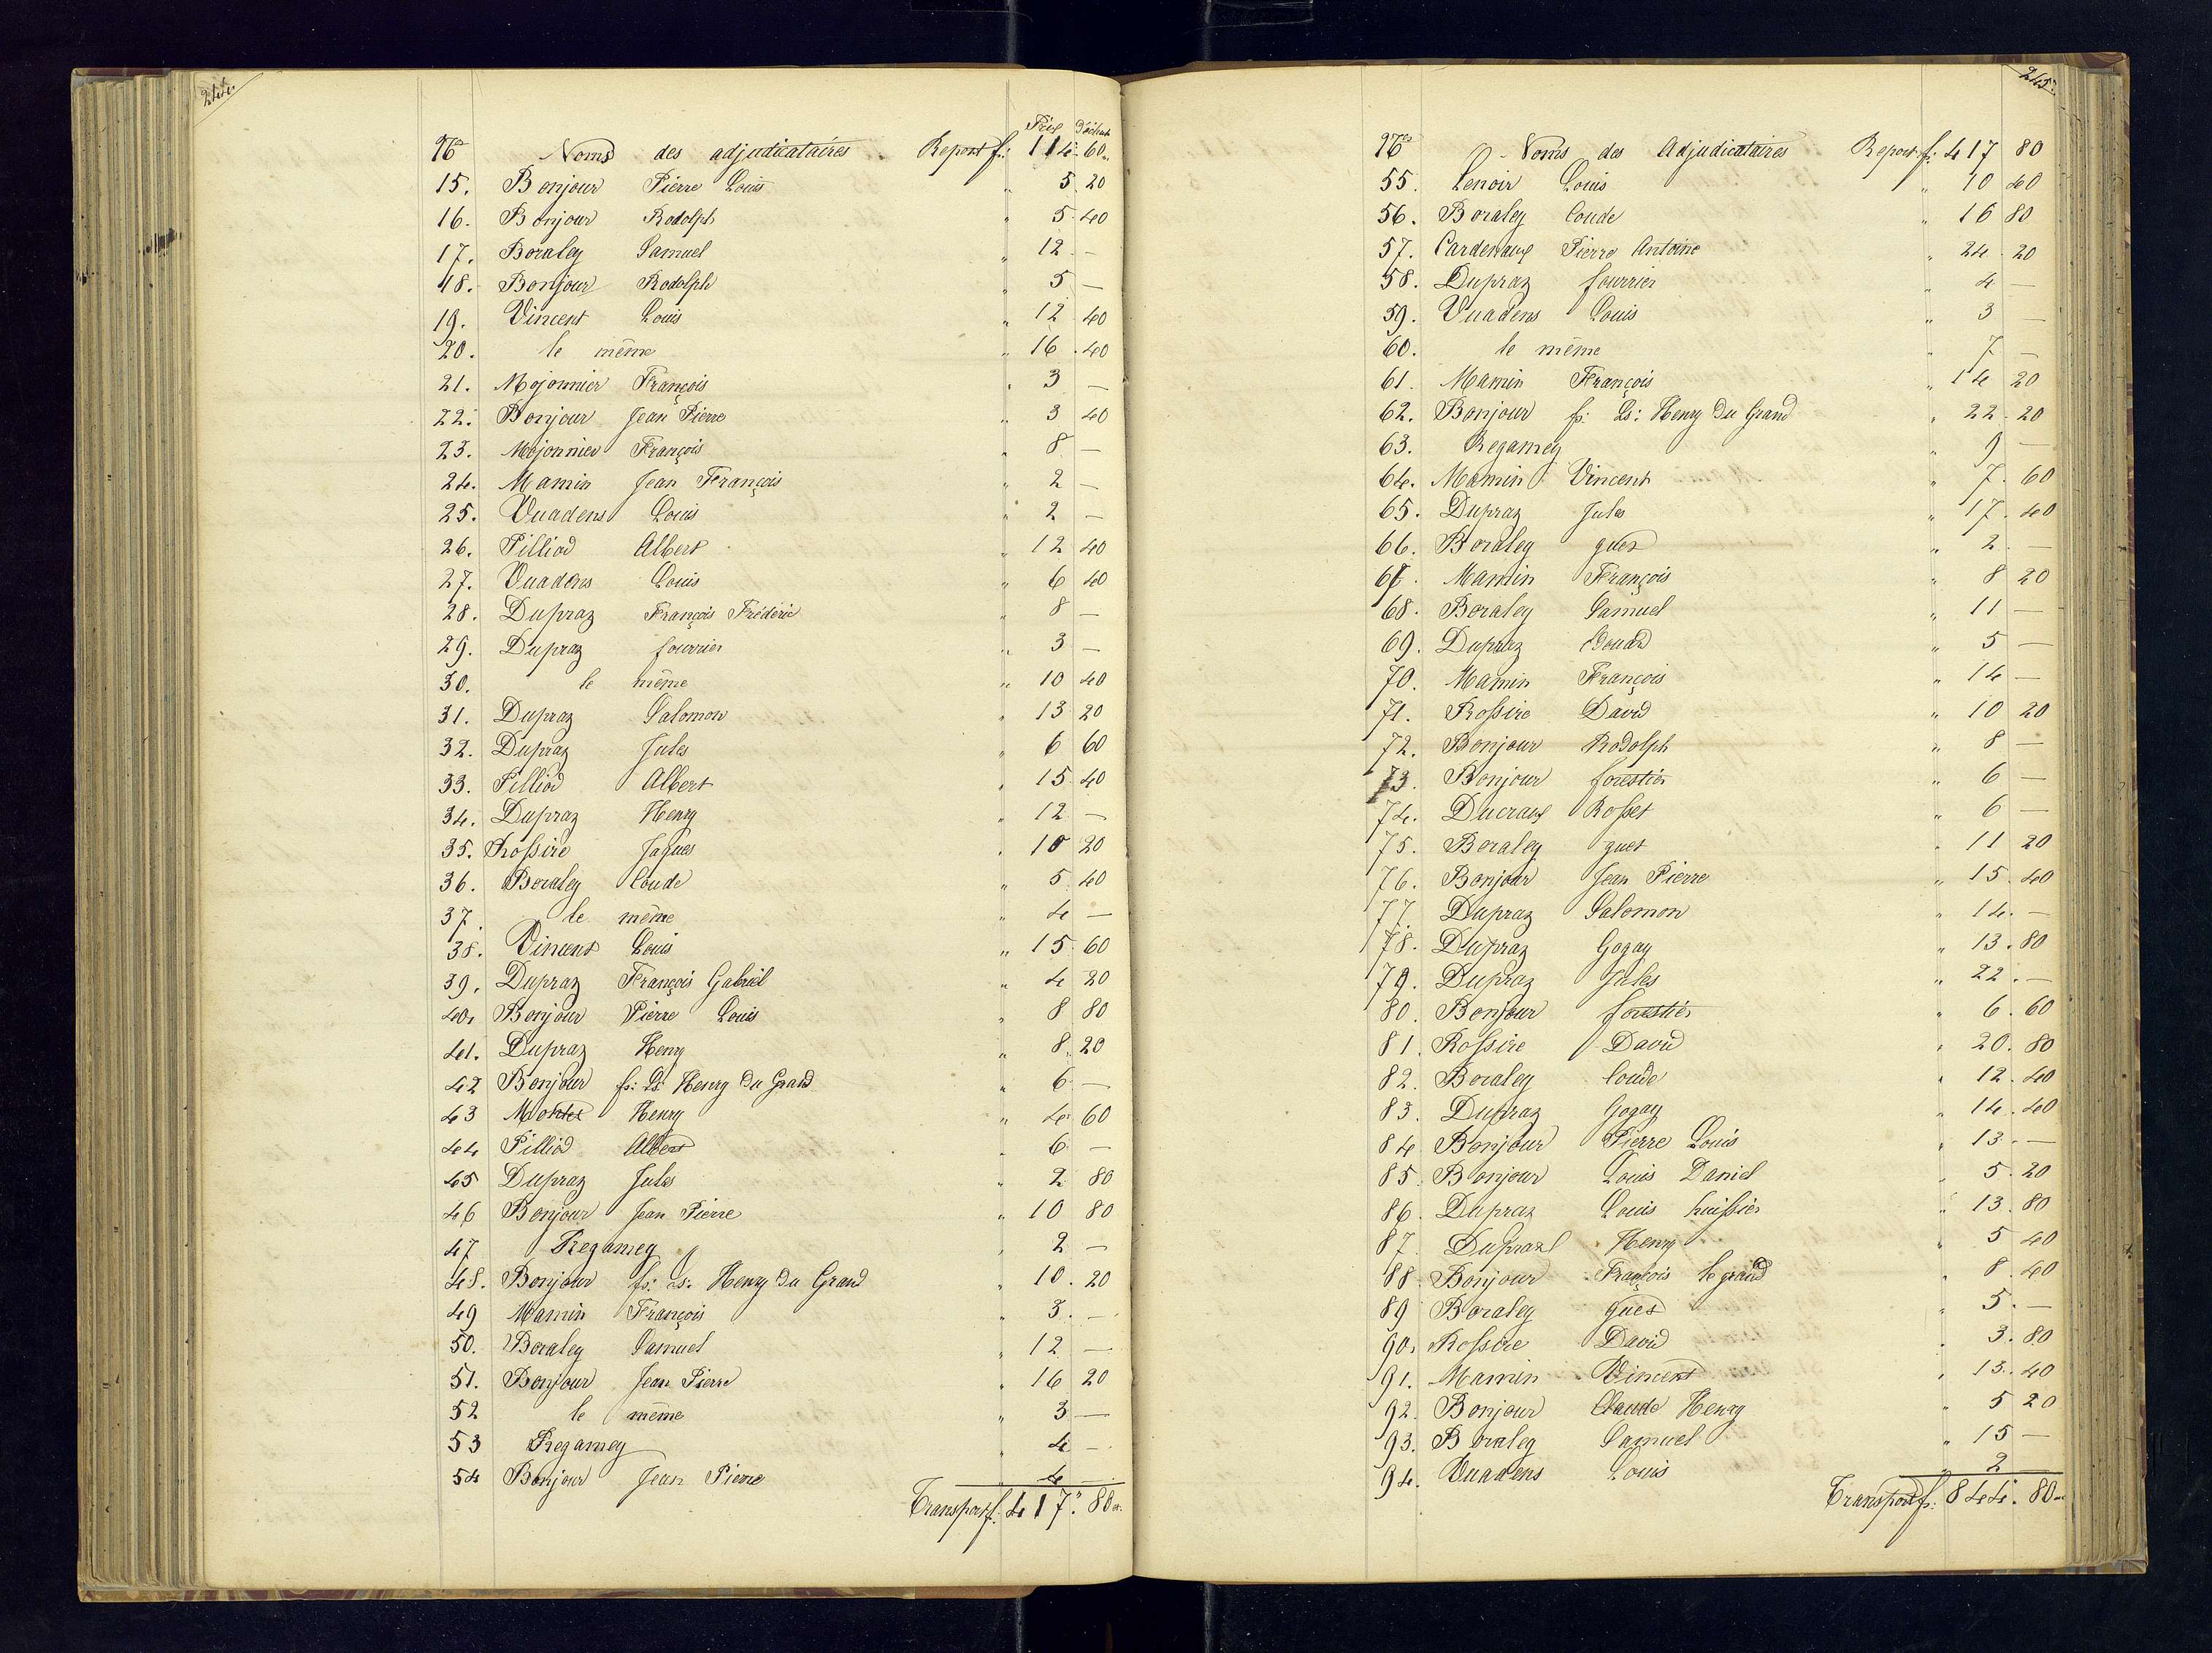 244.
Prix d'échute
No Noms des adjudicataires Report f: 114. 60
15. Bonjour Pierre Louis " 5. 20
16. Bonjour Rodolph " 5. 40
17. Boraley Samuel " 12. —
18. Bonjour Rodolph " 5 —
19. Vincent Louis " 12 40
20. le même " 16. 40
21. Mojonnier François " 3 —
22. Bonjour Jean Pierre " 3 40
23. Mojonnier François " 8 —
24. Mamin Jean François " 2 —
25. Vuadens Louis " 2 —
26. Pilliod Albert " 12 40
27. Vuadens Louis " 6 40
28. Dupraz François Frédéric " 8 —
29. Dupraz fourrier " 3 —
30. le même " 10 40
31. Dupraz Salomon " 13 20
32. Dupraz Jules " 6 60
33. Pilliod Albert " 15. 40
34. Dupraz Henry " 12 —
35. Rossire Jaques " 10 20
36. Boraley Coude " 5. 40
37. le même " 4 —
38. Vincent Louis " 15 60
39. Dupraz François Gabriel " 4 20
40. Bonjour Pierre Louis " 8 80
41. Dupraz Henry " 8. 20
42 Bonjour fs: Ls: Henry Du Grand " 6 —
43 Montet Henry " 4 60
44 Pilliod Albert " 6 —
45 Dupraz Jules " 2 80
46 Bonjour Jean Pierre " 10 80
47 Regamey " 2 —
48. Bonjour fs: Ls: Henry Du Grand " 10. 20
49 Mamin François " 3. —
50. Boraley Samuel " 12 —
51. Bonjour Jean Pierre " 16 20
52 le même " 3 —
53 Regamey " 4 —
54 Bonjour Jean Pierre " 4 —
Transport f: 417. 80
245.
Nos Noms des Adjudicataires Report f: 417 80
55. Lenoir Louis " 10 40
56. Boraley Coude " 16 80
57. Cardenaux Pierre Antoine " 24. 20
58. Dupraz fourrier " 4 —
59. Vuadens Louis " 3 —
60. le même " 7 —
61. Mamin François " 14 20
62. Bonjour fs: Ls: Henry Du Grand " 22. 20
63. Regamey " 9 —
64. Mamin Vincent " 7. 60
65. Dupraz Jules " 17. 40
66. Boraley guet " 2. —
67. Mamin François " 8 20
68. Boraley Samuel " 11 —
69. Dupraz Edouard " 5 —
70. Mamin François " 14 —
71. Rossire David " 10 20
72. Bonjour Rodolph " 8 —
73. Bonjour forestier " 6 —
74. Ducraux Rosset " 6 —
75. Boraley guet " 11 20
76. Bonjour Jean Pierre " 15. 40
77. Dupraz Salomon " 14. —
78. Dupraz Gogay " 13. 80
79. Dupraz Jules " 22. —
80. Bonjour forestier " 6. 60
81. Rossire David " 20. 80
82. Boraley Coude " 12. 40
83. Dupraz Gogay " 14. 40
84 Bonjour Pierre Louis " 13. —
85. Bonjour Louis Daniel " 5. 20
86. Dupraz Louis huissier " 13. 80
87. Dupraz Henry " 5 40
88. Bonjour François le grand " 8. 40
89 Boraley guet " 5. —
90. Rossire David " 3. 80
91. Mamin Vincent " 13. 40
92. Bonjour Claude Henry " 5 20
93. Boraley Samuel " 15 —
94. Vuadens Louis " 2 —
Transport f: 844. 80